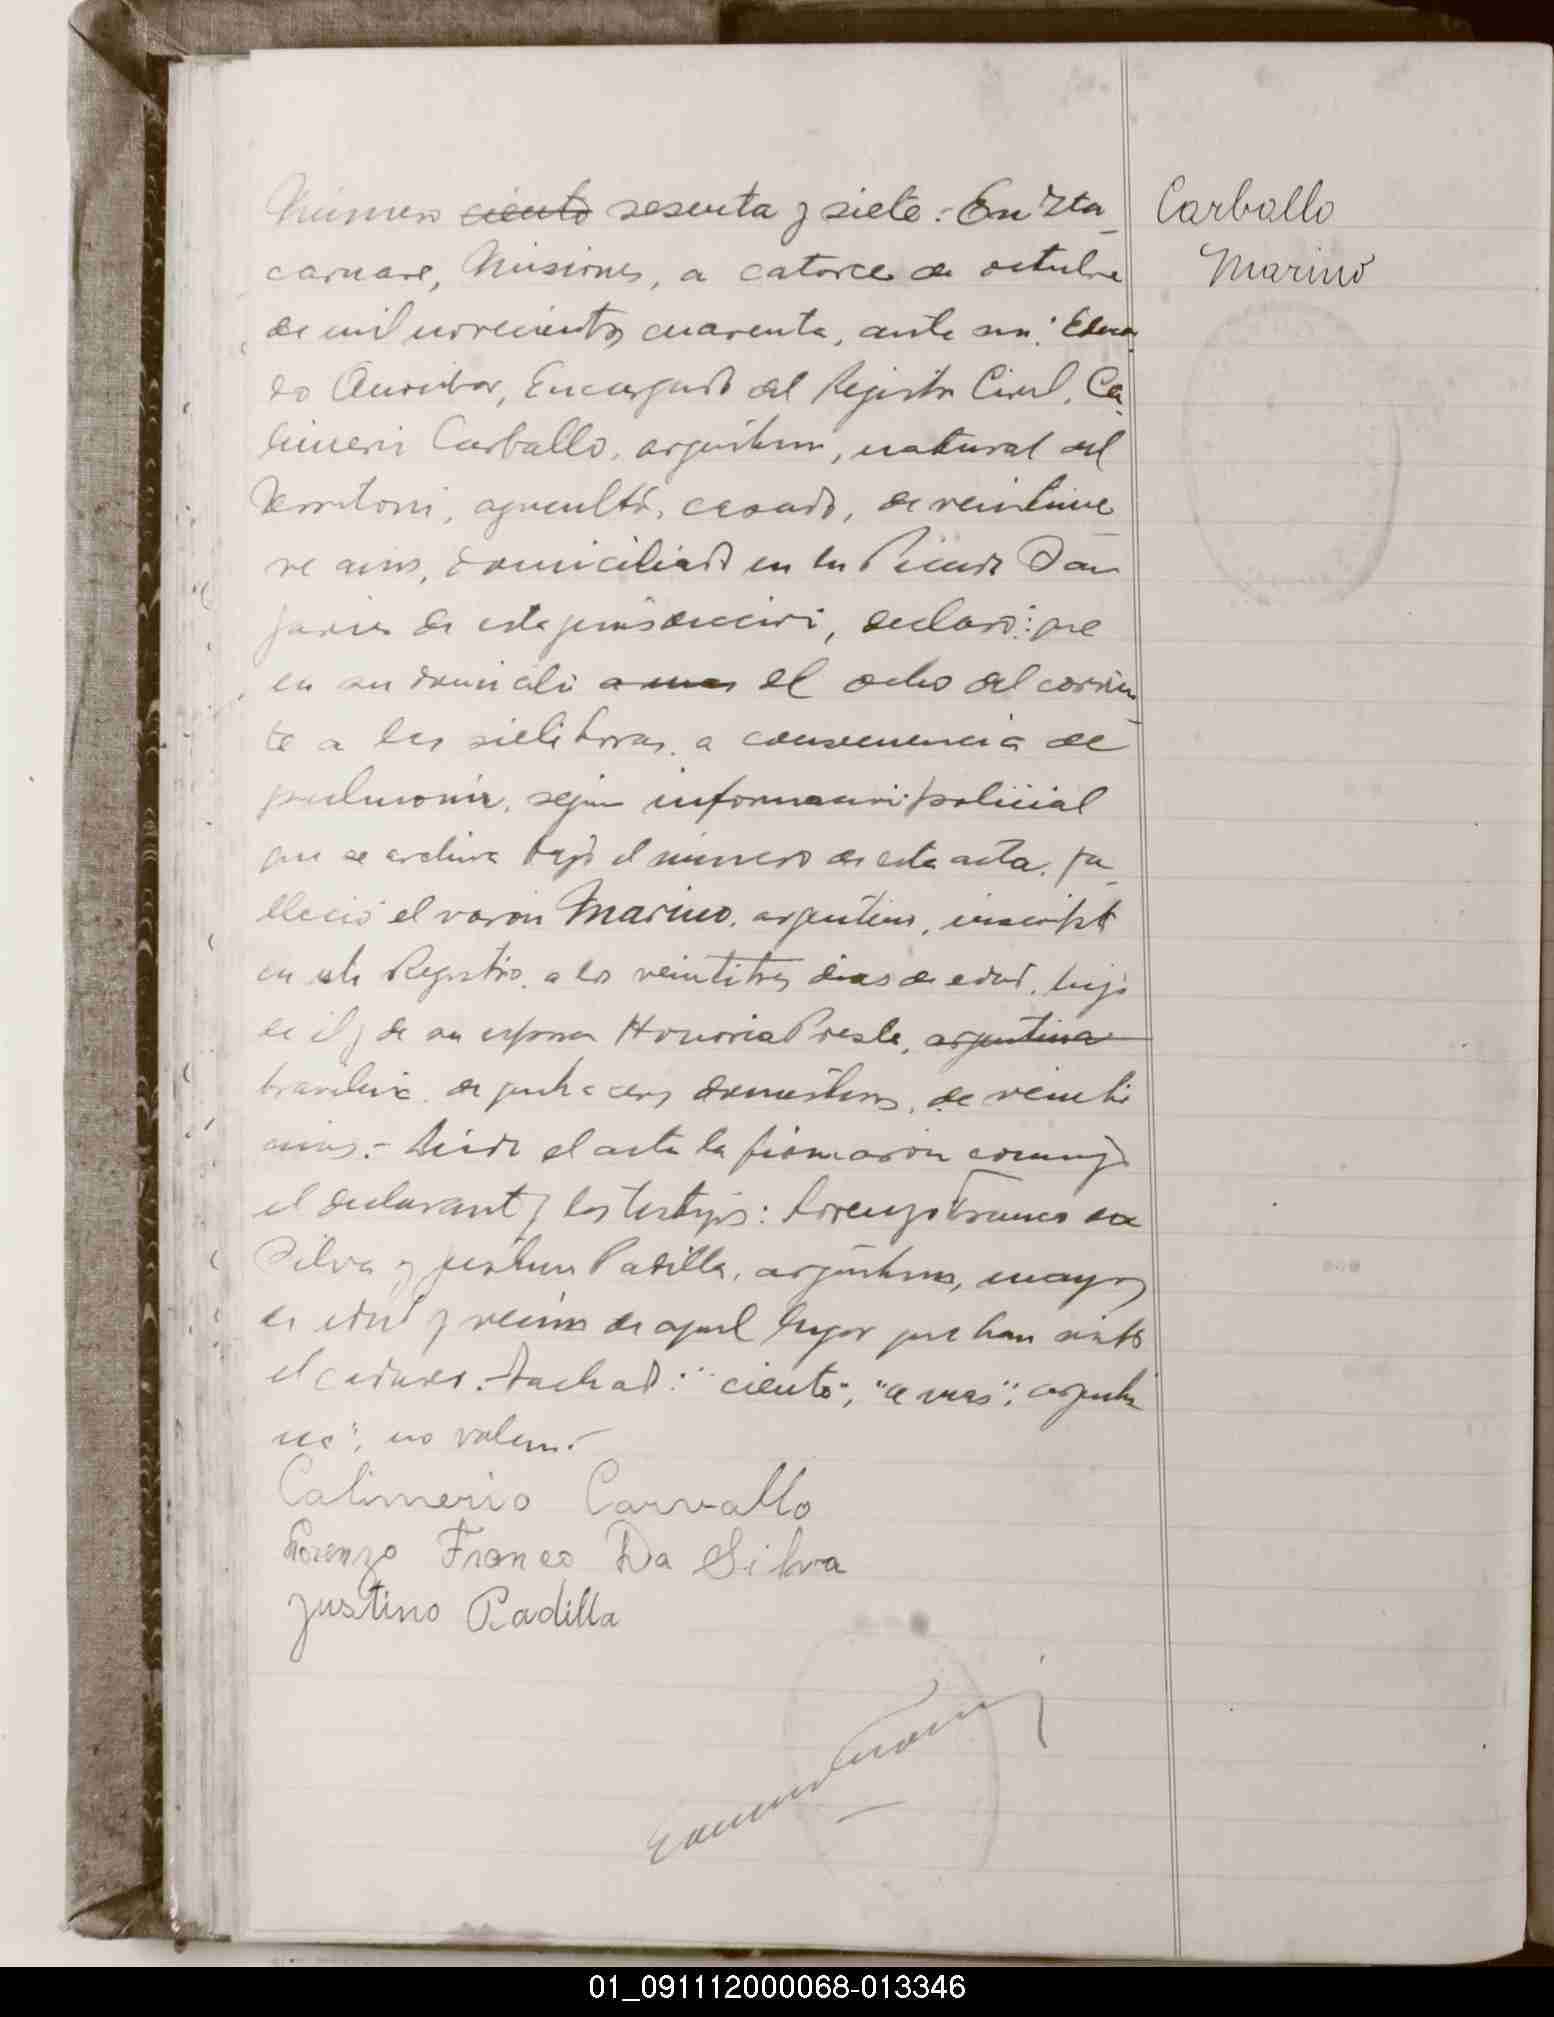 Número ciento sesenta y siete:- En Ita-
caruare, Misiones, a catorce de octubre
de mil novecientos cuarenta, ante mi:
Encargado del Registro Civil, Ca-
limerio Carballo, argentino, natural del
Territorio, agricultor, casado, de veintinue-
ve años, domiciliado en la Picada San
Javier de esta jurisdicción, declaró: que
en su domicilio a mas el ocho del corrien-
te a las siete horas, a consecuencia de
pulmonía, según información policial
que se archiva bajo el número de esta acta, fa-
lleció el varón Marino, argentino, inscripto
en este Registro, a los veintitres dias de edad, hijo
de él y de su esposa Honoria Preste, argentina
brasilera, de quehaceres domésticos, de veinte
años.- Leida el acta la firmaron conmigo
el declarante y los testigos: Lorenzo Franco da
Silva y Justino Padilla, argentinos, mayores
de edad y vecinos de aquel lugar que han visto
el cadaver.- Tachado: "ciento", "a mas", argenti
na", no valen.-
Calimerio Carvallo
Lorenzo Franco Da Silva
Justino Padilla
Carballo
Marino
01_091112000068-013346